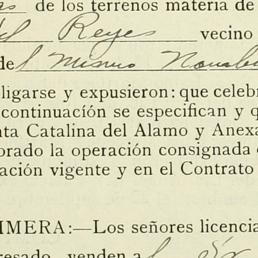 de los terrenos materia de
Reyes vecino
del mismo Nombre
ligarse y expusieron: que celeb
continuación se especifican y q
nta Catalina del Alamo y Anexa
orado la operación consignada
ación vigente y en el Contrato
IMERA:—Los señores licencia
resado, venden a